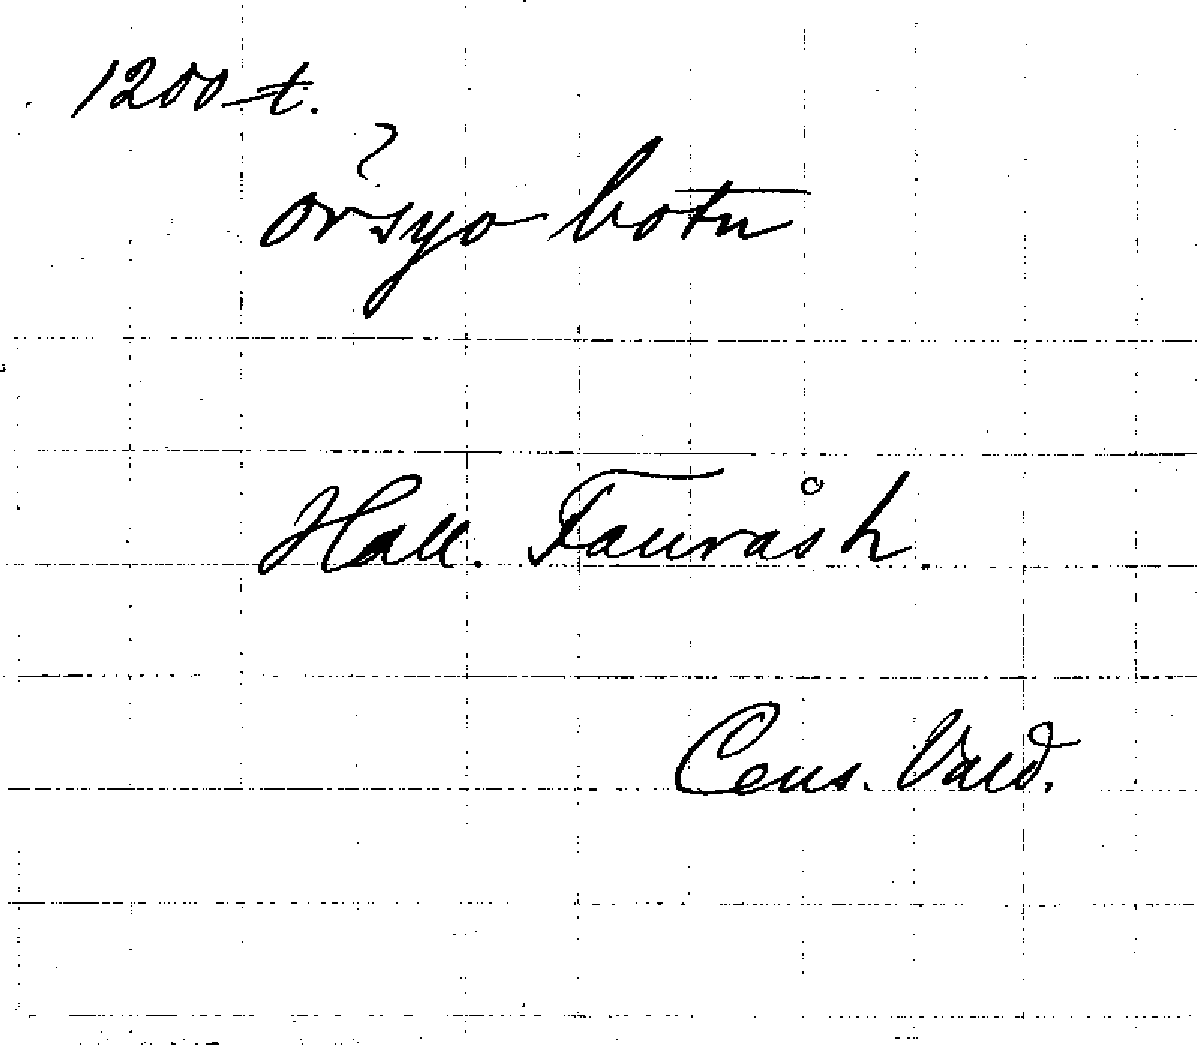 1200-t.
?
örsyo botn
Hall. Fauråsh.
Cens. Vald.